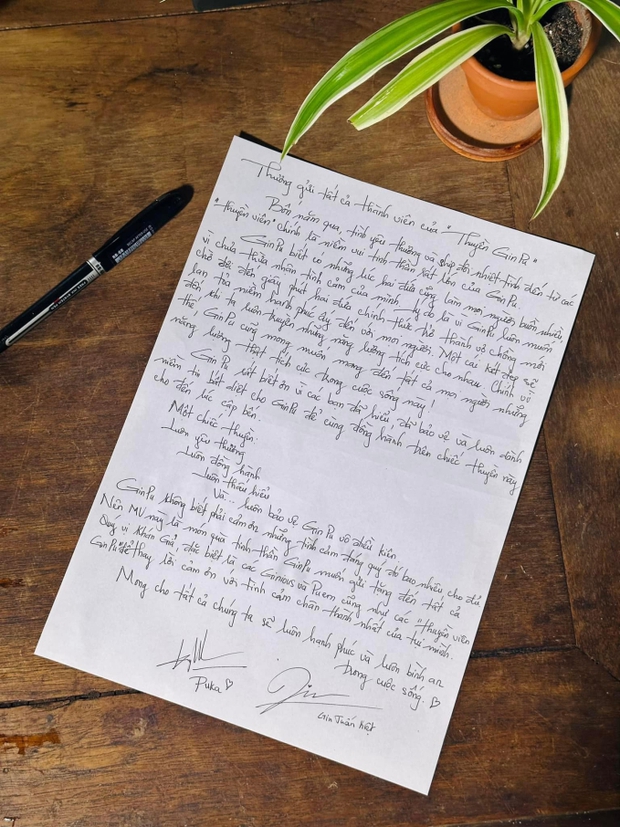 Thương gửi tất cả thành viên của "Thuyền GinPu"
Bốn năm qua, tình yêu thương và giúp đỡ nhiệt tình đến từ các
"thuyền viên" chính là niềm vui tinh thần rất lớn của GinPu
GinPu biết có những lúc hai đứa cũng làm mọi người buồn nhiều,
vì chưa thừa nhận tình cảm của mình. Lý do là vì GinPu luôn muốn
chờ đợi đến giây phút hai đứa chính thức trở thành vợ chồng mới
lan tỏa niềm hạnh phúc ấy đến với mọi người. Một cái kết đẹp sẽ
đến khi ta luôn truyền những năng lượng tích cực cho nhau. Chính vì
thế, GinPu cũng mong muốn mang đến tất cả mọi người những
năng lượng thật tích cực trong cuộc sống này!
GinPu rất biết ơn vì các bạn đã hiểu, đã bảo vệ và luôn dành
niềm tin bất diệt cho GinPu để cùng đồng hành trên chiếc thuyền này
cho đến lúc cập bến.
Một chiếc thuyền:
Luôn yêu thương
Luôn đồng hành
Luôn thấu hiểu
Và.. luôn bảo vệ GinPu vô điều kiện
GinPu không biết phải cảm ơn những tình cảm đáng quý đó bao nhiêu cho đủ
Nên MV này là món quà tinh thần GinPu muốn gửi tặng đến tất cả
Quý vị Khán Giả, đặc biệt là các Ginious và Puem cũng như các "Thuyền viên
GinPu" để thay lời cảm ơn với tình cảm chân thành nhất của tụi mình.
Mong cho tất cả chúng ta sẽ luôn hạnh phúc và luôn bình an
trong cuộc sống. ♡
Puka ♡
Gin Tuấn Kiệt